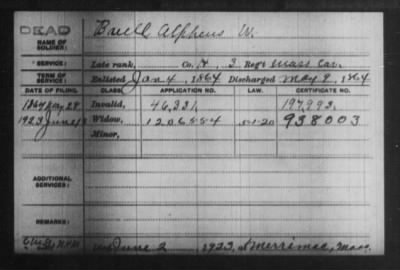 DEAD
NAME OF SOLDIER: Buell Alpheus W.
SERVICE: Late rank, Co. H, 3, Reg't Mass Cav.
TERM OF SERVICE: Enlisted Jan 4, 1864 Discharged May 9, 1864
DATE OF FILING. CLASS. APPLICATION NO. LAW. CERTIFICATE NO.
1864 28 Invalid, 46,331, 197,993.
1923 June Widow, 1206884 5-1-20 938003
Minor,
ADDITIONAL SERVICES:
REMARKS:
June 2, 1923, Merrimac, Mass.